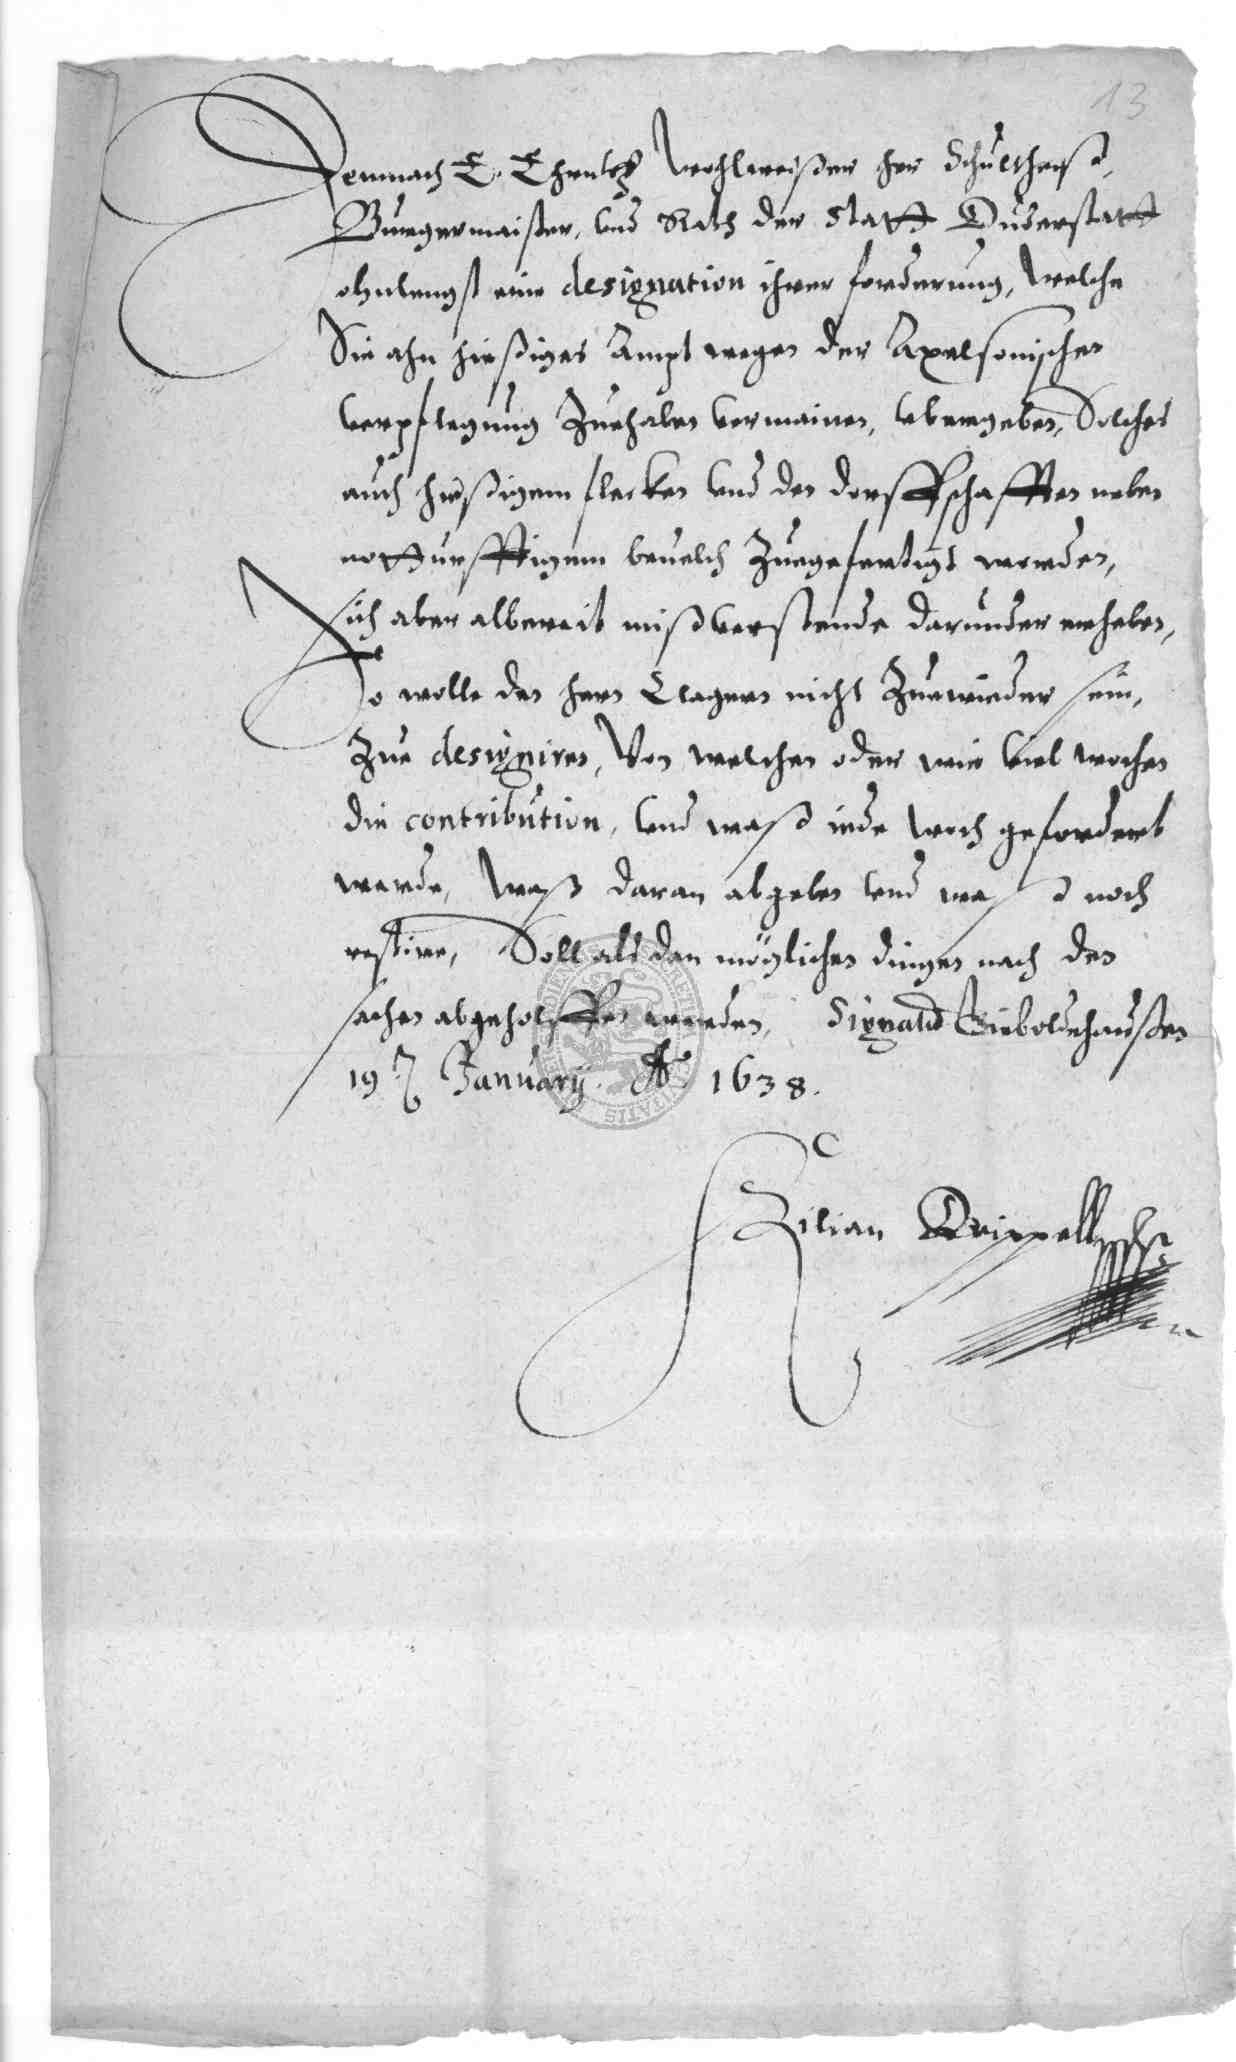 13
Demnach E. Ehrnk. Wohlweißer her Schultheiß,
Burgermaister, vnd Rath der Statt Duderstatt
ohnlengst eine designation ihrer forderung, welche
Sie ahn hießiges Ampt wegen der Axelsonischen
verpflegung Zuehaben vermainen, vbergeben, Solches
auch hießigem flecken vnd den dorffschafften neben
notturfftigem beuelch Zuegefertigt worden,
sich aber albereit mißverstende darunder erheben,
So wolle den hern Clagern nicht Zuewieder sein,
Zue designiren, Von welchen oder wie viel wochen
die contribution, vnd waß iede woch gefordert
werde, Waß daran abgeben vnd waß noch
restire, Soll alß dan möglichen dingen nach den
sachen abgeholffen werden, Signatu Gieboldehaußen
19 January Ao 1638.
Kilian Krippell